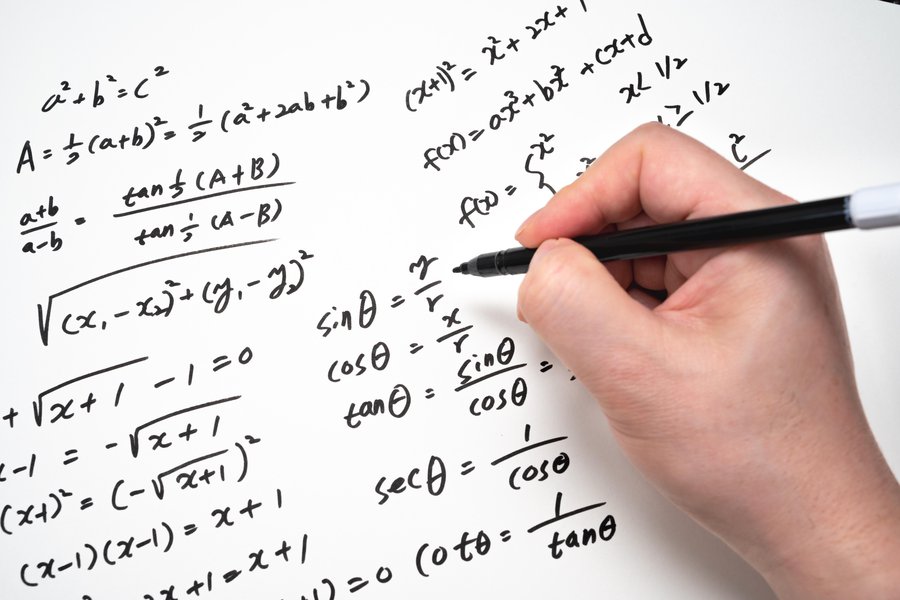 a²+b²=c²
A=½(a+b)²=½(a²+2ab+b²)
(a+b)/(a-b) = tan½(A+B)/tan½(A-B)
√(x₁-x₂)²+(y₁-y₂)²
+√(x+1) -1=0
x-1 = -√(x+1)
(-√(x+1))²
(x-1)(x-1)=x+1
x+1=x+1
=0
(x+1)²=x²+2x+1
f(x)=ax³+bx²+cx+d
x<1/2
≥1/2
f(x)={x²
sinθ=y/r
cosθ=x/r
tanθ=sinθ/cosθ=
secθ=1/cosθ
cotθ=1/tanθ